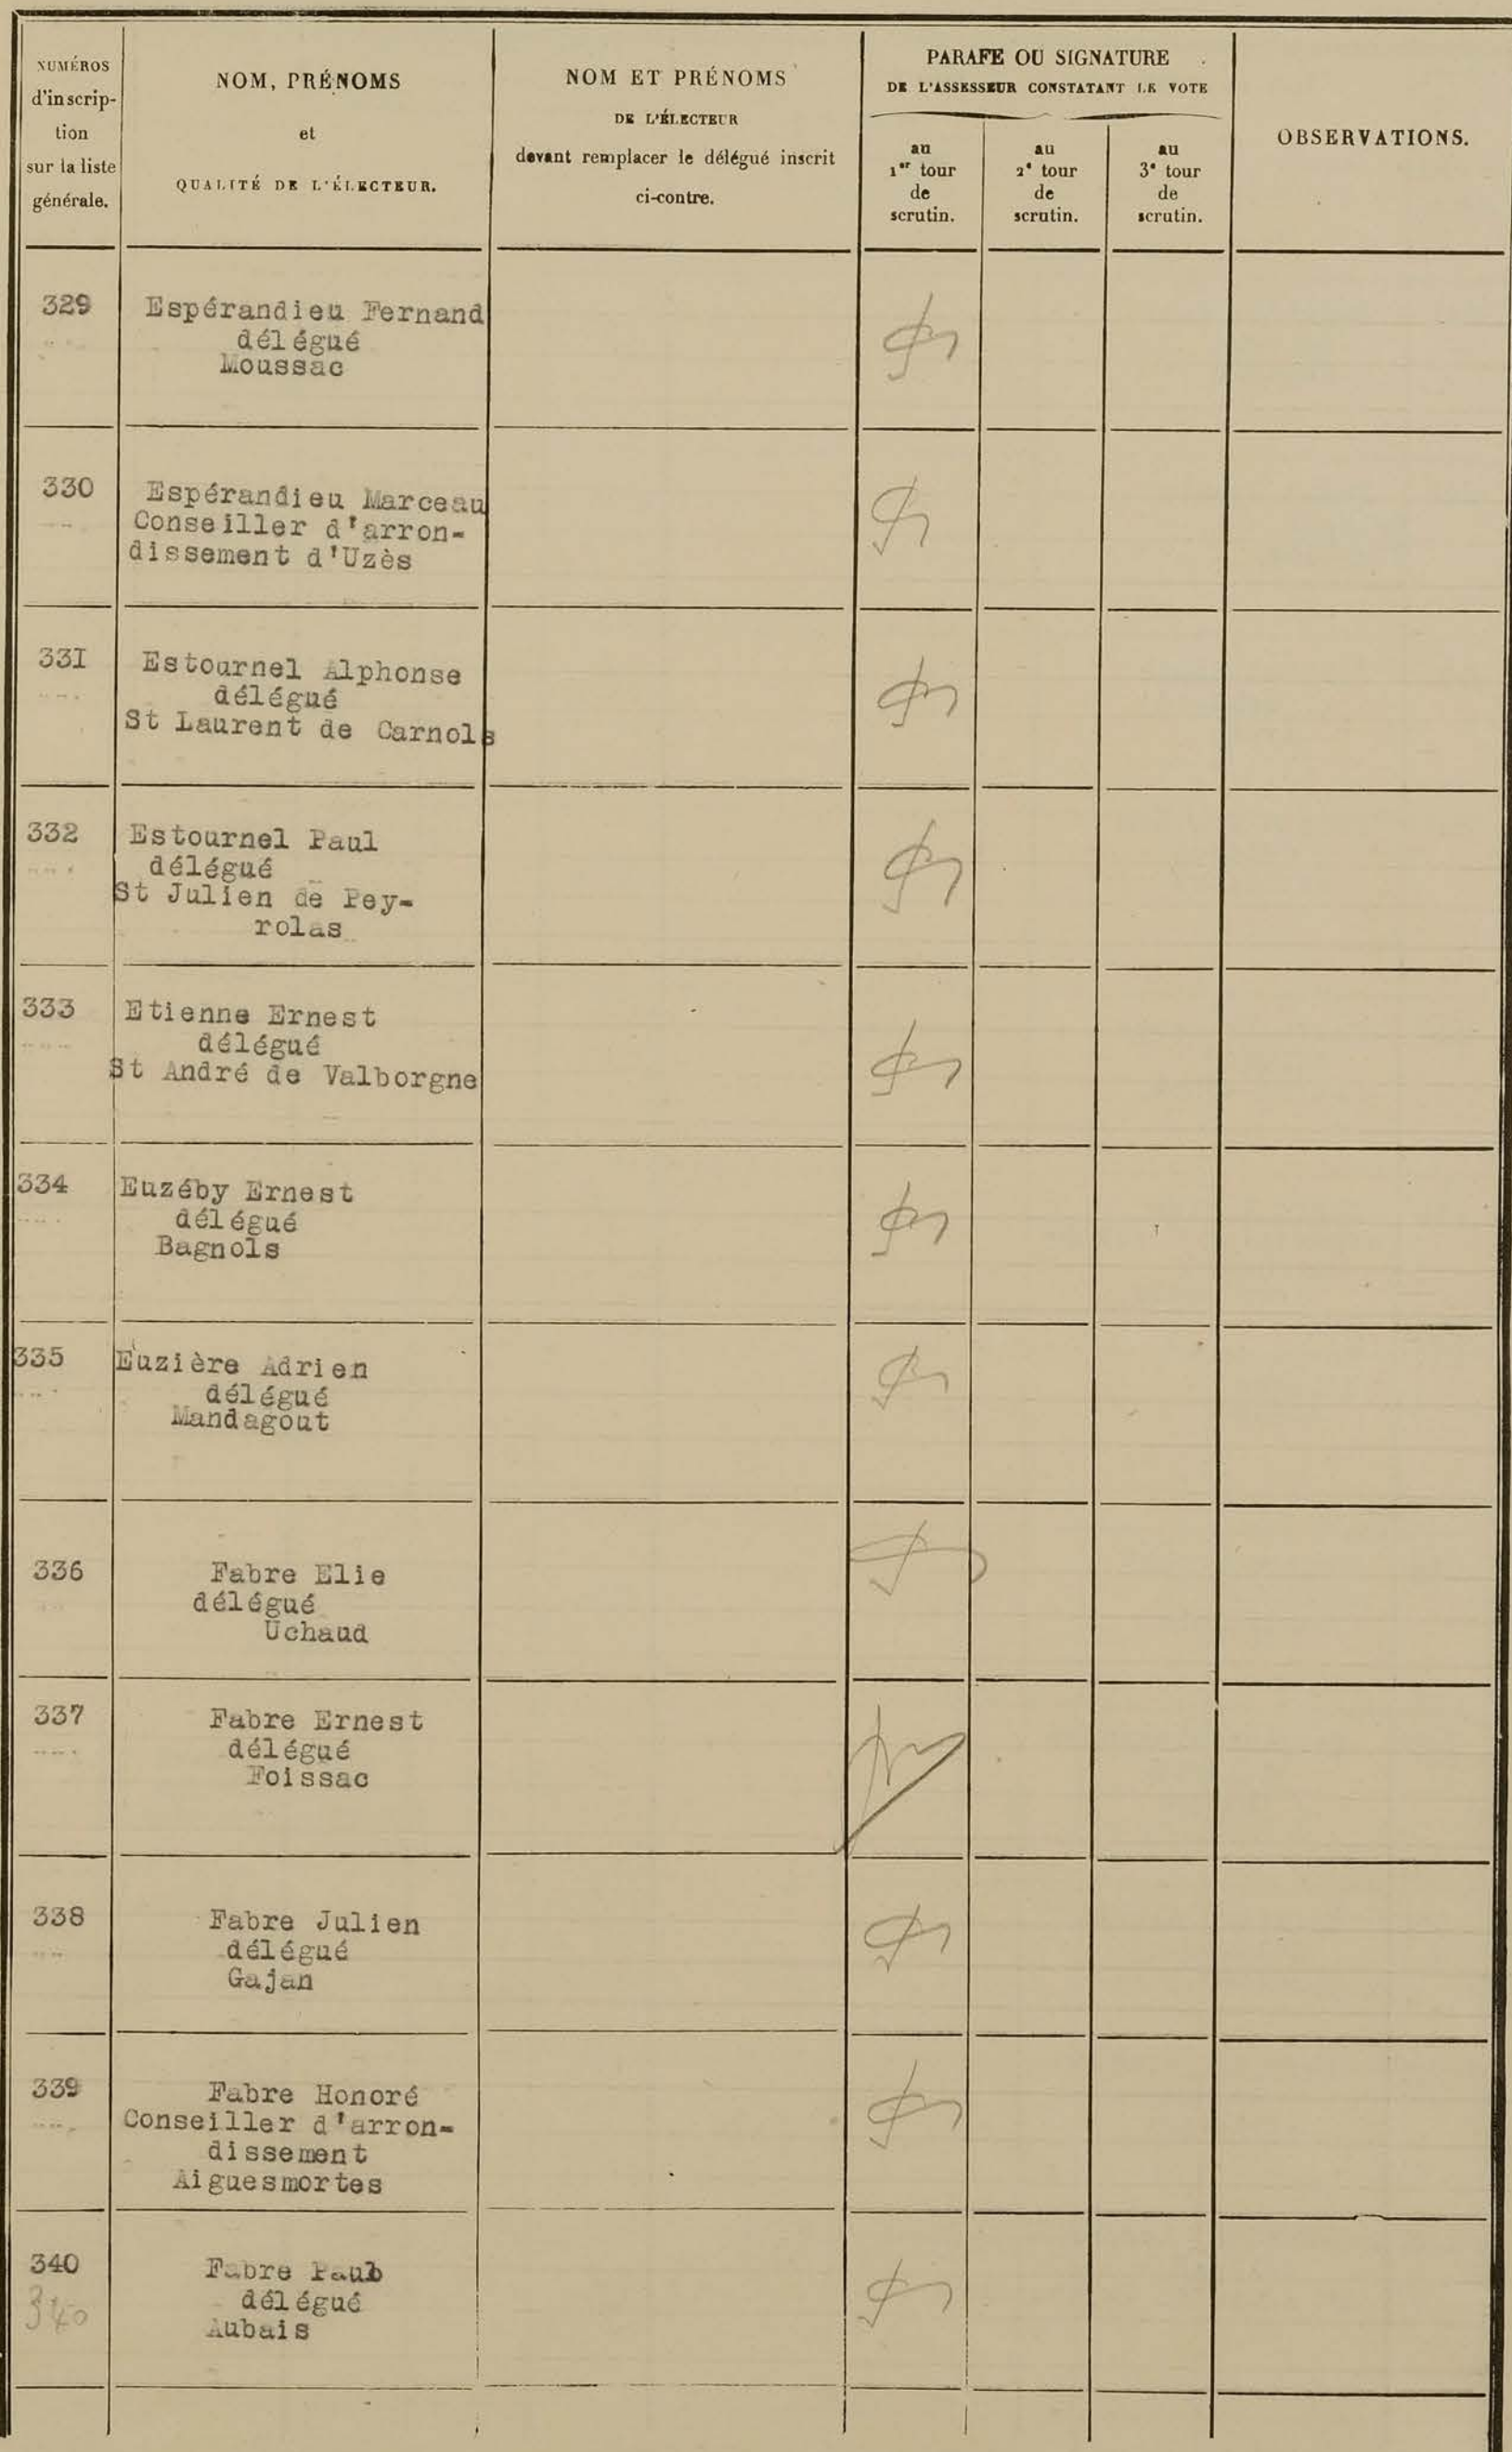 NUMÉROS
d'inscrip-
tion
sur la liste
générale.
NOM, PRÉNOMS
et
QUALITÉ DE L'ÉLECTEUR.
NOM ET PRÉNOMS
DE L'ÉLECTEUR
devant remplacer le délégué inscrit
ci-contre.
PARAFE OU SIGNATURE
DE L'ASSESSEUR CONSTATANT LE VOTE
au
1er tour
de
scrutin.
au
2e tour
de
scrutin.
au
3e tour
de
scrutin.
OBSERVATIONS.
329
Espérandieu Fernand
délégué
Moussac
330
Espérandieu Marceau
Conseiller d'arron-
dissement d'Uzès
33I
Estournel Alphonse
délégué
St Laurent de Carnols
332
Estournel Paul
délégué
St Julien de Pey-
rolas
333
Etienne Ernest
délégué
St André de Valborgne
334
Euzéby Ernest
délégué
Bagnols
335
Euzière Adrien
délégué
Mandagout
336
Fabre Elie
délégué
Uchaud
337
Fabre Ernest
délégué
Foissac
338
Fabre Julien
délégué
Gajan
339
Fabre Honoré
Conseiller d'arron-
dissement
Aiguesmortes
340
340
Fabre
délégué
Aubais